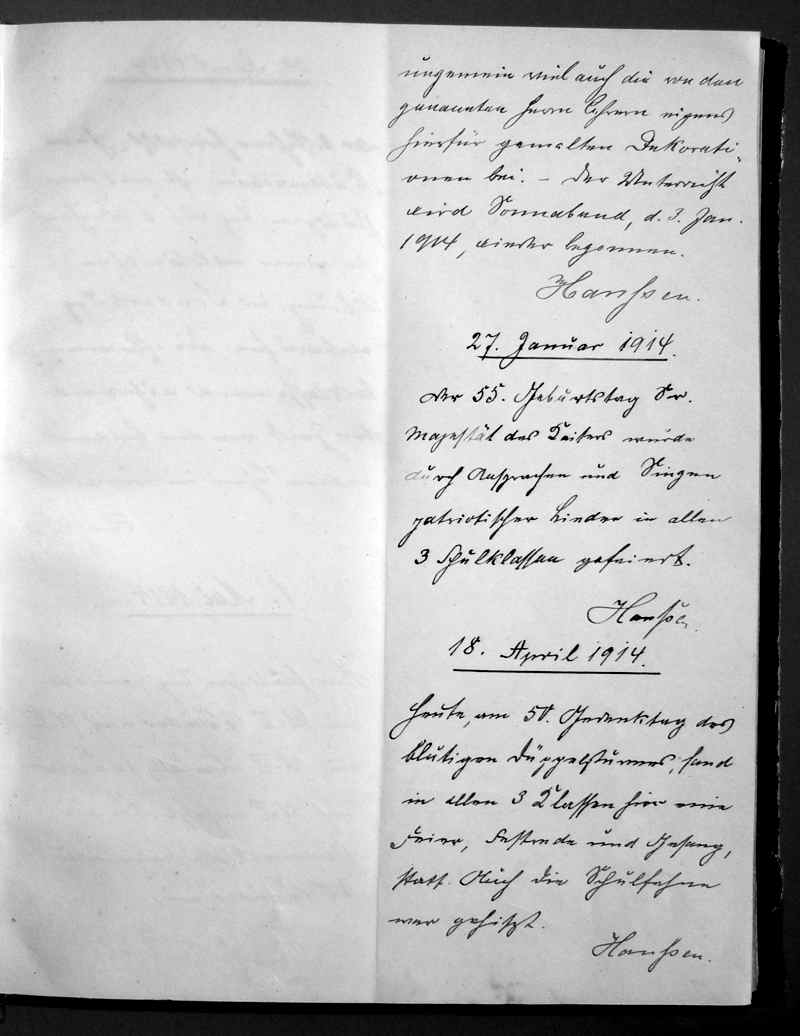 ungemein viel auch die von den
genannten Herrn Lehrern eigens
hierfür gemalten Dekorati-
onen bei. – Der Unterricht
wird Sonnabend, d. 3. Jan.
1914, wieder begonnen.
Hanssen.
27. Januar 1914.
Der 55. Geburtstag Sr.
Majestät des Kaisers wurde
durch Ansprachen und Singen
patriotischer Lieder in allen
3 Schulklassen gefeiert.
Hanssen.
18. April 1914.
Heute, am 50. Gedenktag des
blutigen Düppelsturmes, fand
in allen 3 Klassen hier eine
Feier, Festrede und Gesang,
statt. Auch die Schulfahne
war gehißt.
Hanssen.